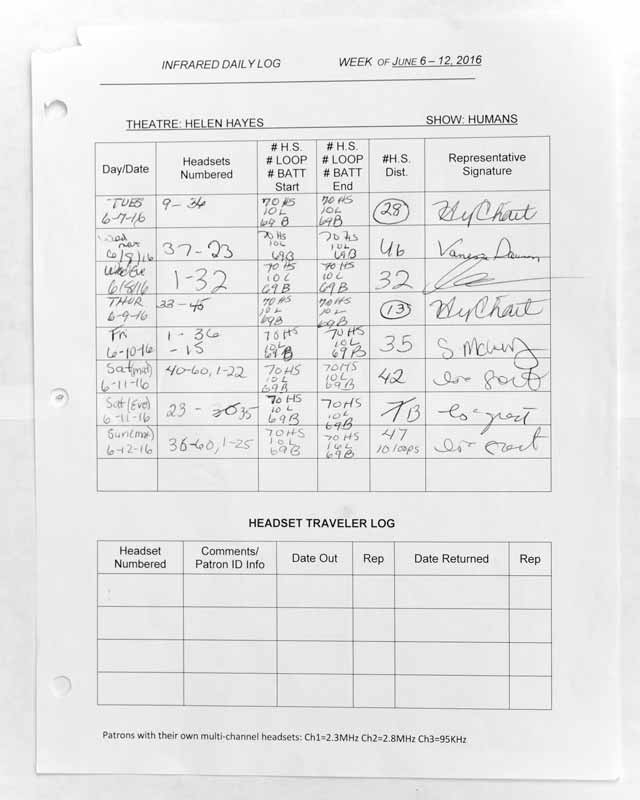 INFRARED DAILY LOG WEEK OF JUNE 6 – 12, 2016
THEATRE: HELEN HAYES SHOW: HUMANS
Day/Date
Headsets
Numbered
# H.S.
# LOOP
# BATT
Start
# H.S.
# LOOP
# BATT
End
#H.S.
Dist.
Representative
Signature
TUES
6-7-16
9 - 36
70 HS
10 L
69 B
70 HS
10 L
69 B
28
Wed
mat
6/8/16
37 - 23
70 HS
10 L
69 B
70 HS
10 L
69 B
46
Wed Eve
6/8/16
1-32
70 HS
10 L
69 B
70 HS
10 L
69 B
32
THUR
6-9-16
33 - 45
70 HS
10 L
69 B
70 HS
10 L
69 B
13
Fri
6-10-16
1 - 36
- 15
70 HS
10 L
69 B
70 HS
10 L
69 B
35
Sat (mat)
6-11-16
40-60, 1-22
70 HS
10 L
69 B
70 HS
10 L
69 B
42
Sat (Eve)
6-11-16
23 - 35
70 HS
10 L
69 B
70 HS
10 L
69 B
Sun (mat)
6-12-16
36-60, 1-25
70 HS
10 L
69 B
70 HS
10 L
69 B
47
10 loops
HEADSET TRAVELER LOG
Headset
Numbered
Comments/
Patron ID Info
Date Out
Rep
Date Returned
Rep
Patrons with their own multi-channel headsets: Ch1=2.3MHz Ch2=2.8MHz Ch3=95KHz